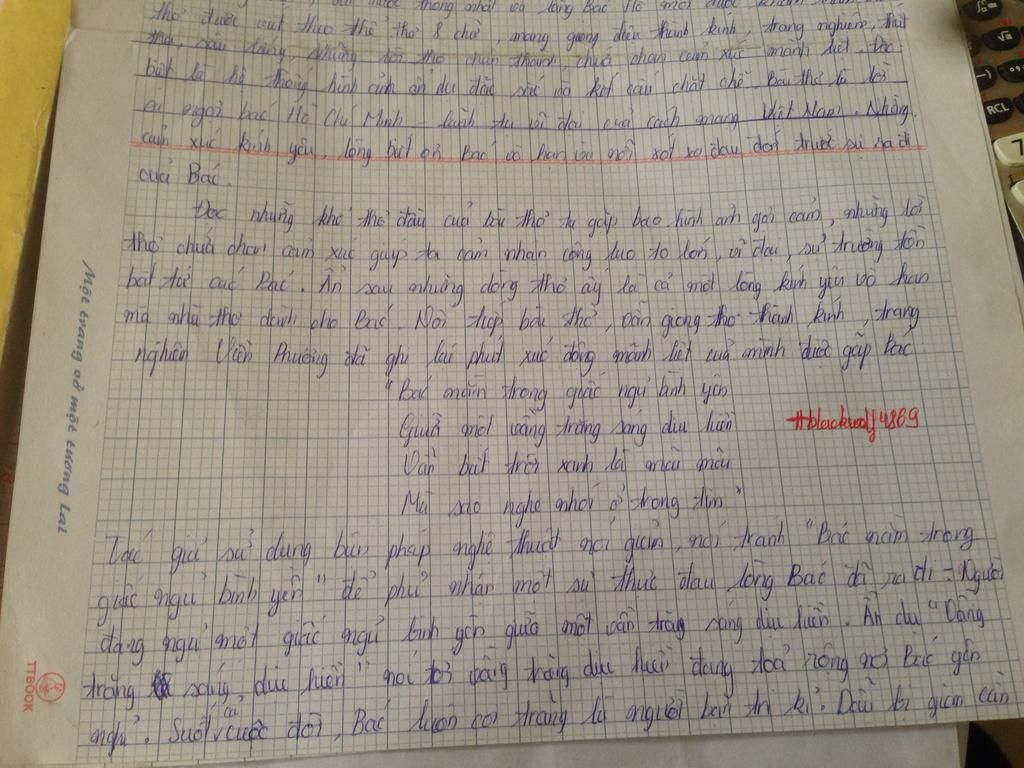 thơ được viết theo thể thơ 8 chữ, mang giọng điệu thành kính, trang nghiêm, thiết
tha, sâu lắng. Những lời thơ chân thành, chứa chan cảm xúc mãnh liệt. Đặc
biệt là hệ thống hình ảnh ẩn dụ đặc sắc và kết cấu chặt chẽ. Bài thơ là lời
ca ngợi bác Hồ Chí Minh - lãnh tụ vĩ đại của cách mạng Việt Nam. Những
cảm xúc kính yêu, lòng biết ơn Bác vô hạn và nỗi xót xa đau đớn trước sự ra đi
của Bác.
Đọc những khổ thơ đầu của bài thơ ta gặp bao hình ảnh gợi cảm, những lời
thơ chứa chan cảm xúc giúp ta cảm nhận công lao to lớn, vĩ đại, sự trường tồn
bất tử của Bác. Ẩn sau những dòng thơ ấy là cả một lòng kính yêu vô hạn
mà nhà thơ dành cho Bác. Nối tiếp bài thơ, vẫn giọng thơ thành kính, trang
nghiêm Viễn Phương đã ghi lại phút xúc động mãnh liệt của mình được gặp Bác
"Bác nằm trong giấc ngủ bình yên
Giữa một vầng trăng sáng dịu hiền
#blackwolf4869
Vẫn biết trời xanh là mãi mãi
Mà sao nghe nhói ở trong tim"
Tác giả sử dụng biện pháp nghệ thuật nói giảm, nói tránh "Bác nằm trong
giấc ngủ bình yên" để phủ nhận một sự thực đau lòng Bác đã ra đi - Người
đang ngủ một giấc ngủ bình yên giữa một vần trăng sáng dịu hiền. Ẩn dụ "Vầng
trăng sáng, dịu hiền" nói tới vầng trăng dịu hiền đang toả rộng nơi Bác yên
nghỉ. Suốt cả cuộc đời, Bác luôn coi trăng là người bạn tri kỉ. Dẫu bị giam cầm
Một trang vở một tương lai
TTBOOK
RCL
7